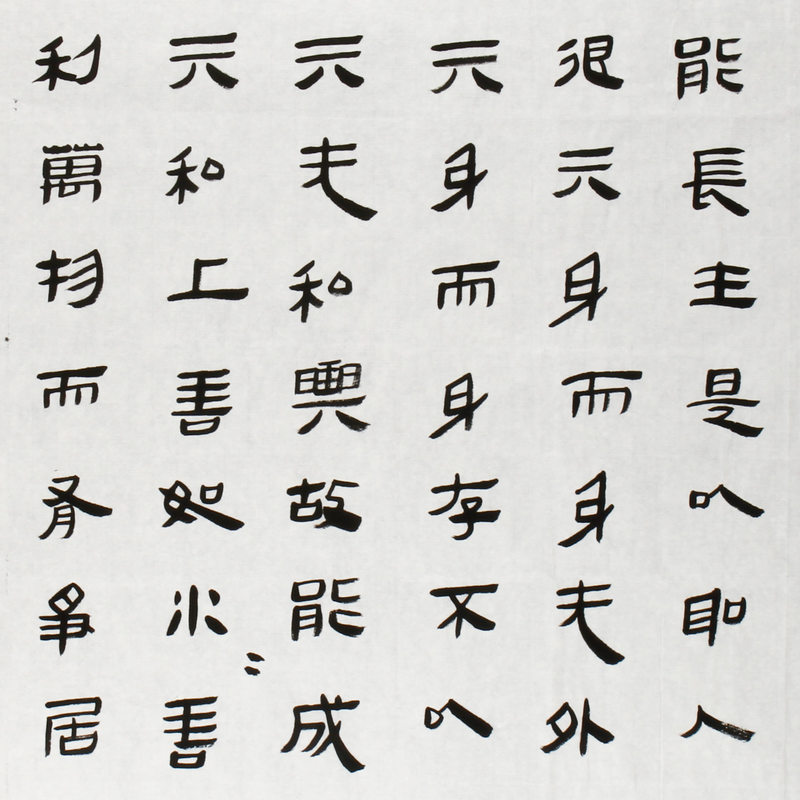 能長生是以耴人
退亓身而身先外
亓身而身存不以
亓无私輿故能成
亓私上善如水=善
利萬物而有爭居